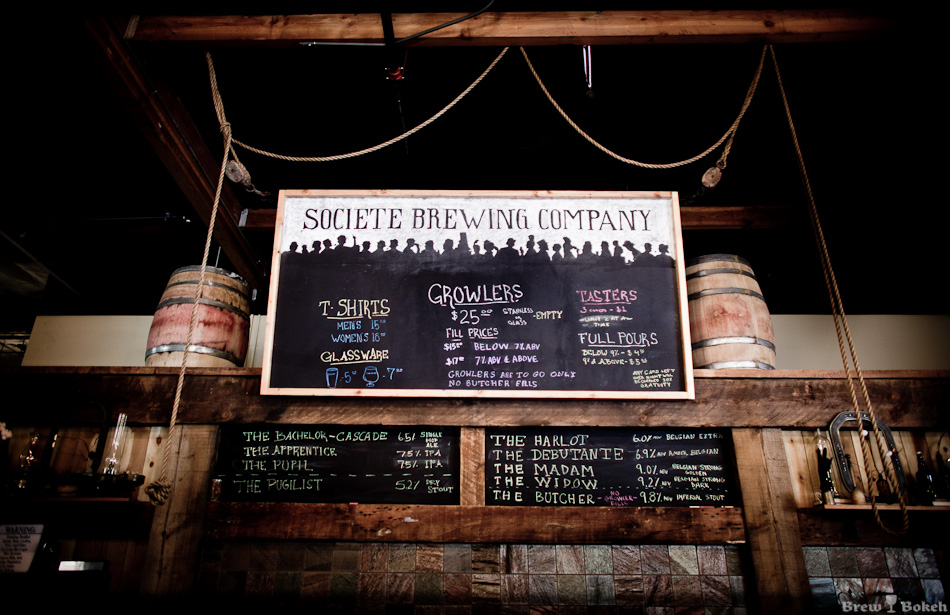 SOCIETE BREWING COMPANY
T-SHIRTS
MEN'S 15⁰⁰
WOMEN'S 18⁰⁰
GLASSWARE
5⁰⁰ 7⁰⁰
GROWLERS
$25⁰⁰ STAINLESS GLASS -EMPTY
FILL PRICES
BELOW 7% ABV
7% ABV & ABOVE
GROWLERS ARE TO GO ONLY
NO BUTCHER FILLS
TASTERS
3 OUNCES - $1
TIME
FULL POURS
BELOW 9% - $4
9% & ABOVE - $5
ANY CARD LEFT
OVER NIGHT WILL
GRATUITY
THE BACHELOR-CASCADE 6.5% SINGLE HOP ALE
THE APPRENTICE 7.5% IPA
THE PUPIL 7.5% IPA
THE PUGILIST 5.2% DRY STOUT
THE HARLOT 6.0% ABV BELGIAN EXTRA
THE DEBUTANTE 6.9% ABV AMBER BELGIAN
THE MADAM 9.0% ABV BELGIAN STRONG GOLDEN
THE WIDOW 9.2% ABV BELGIAN STRONG DARK
THE BUTCHER -NO GROWLER FILLS- 9.8% ABV IMPERIAL STOUT
WARNING
Brew Boksh